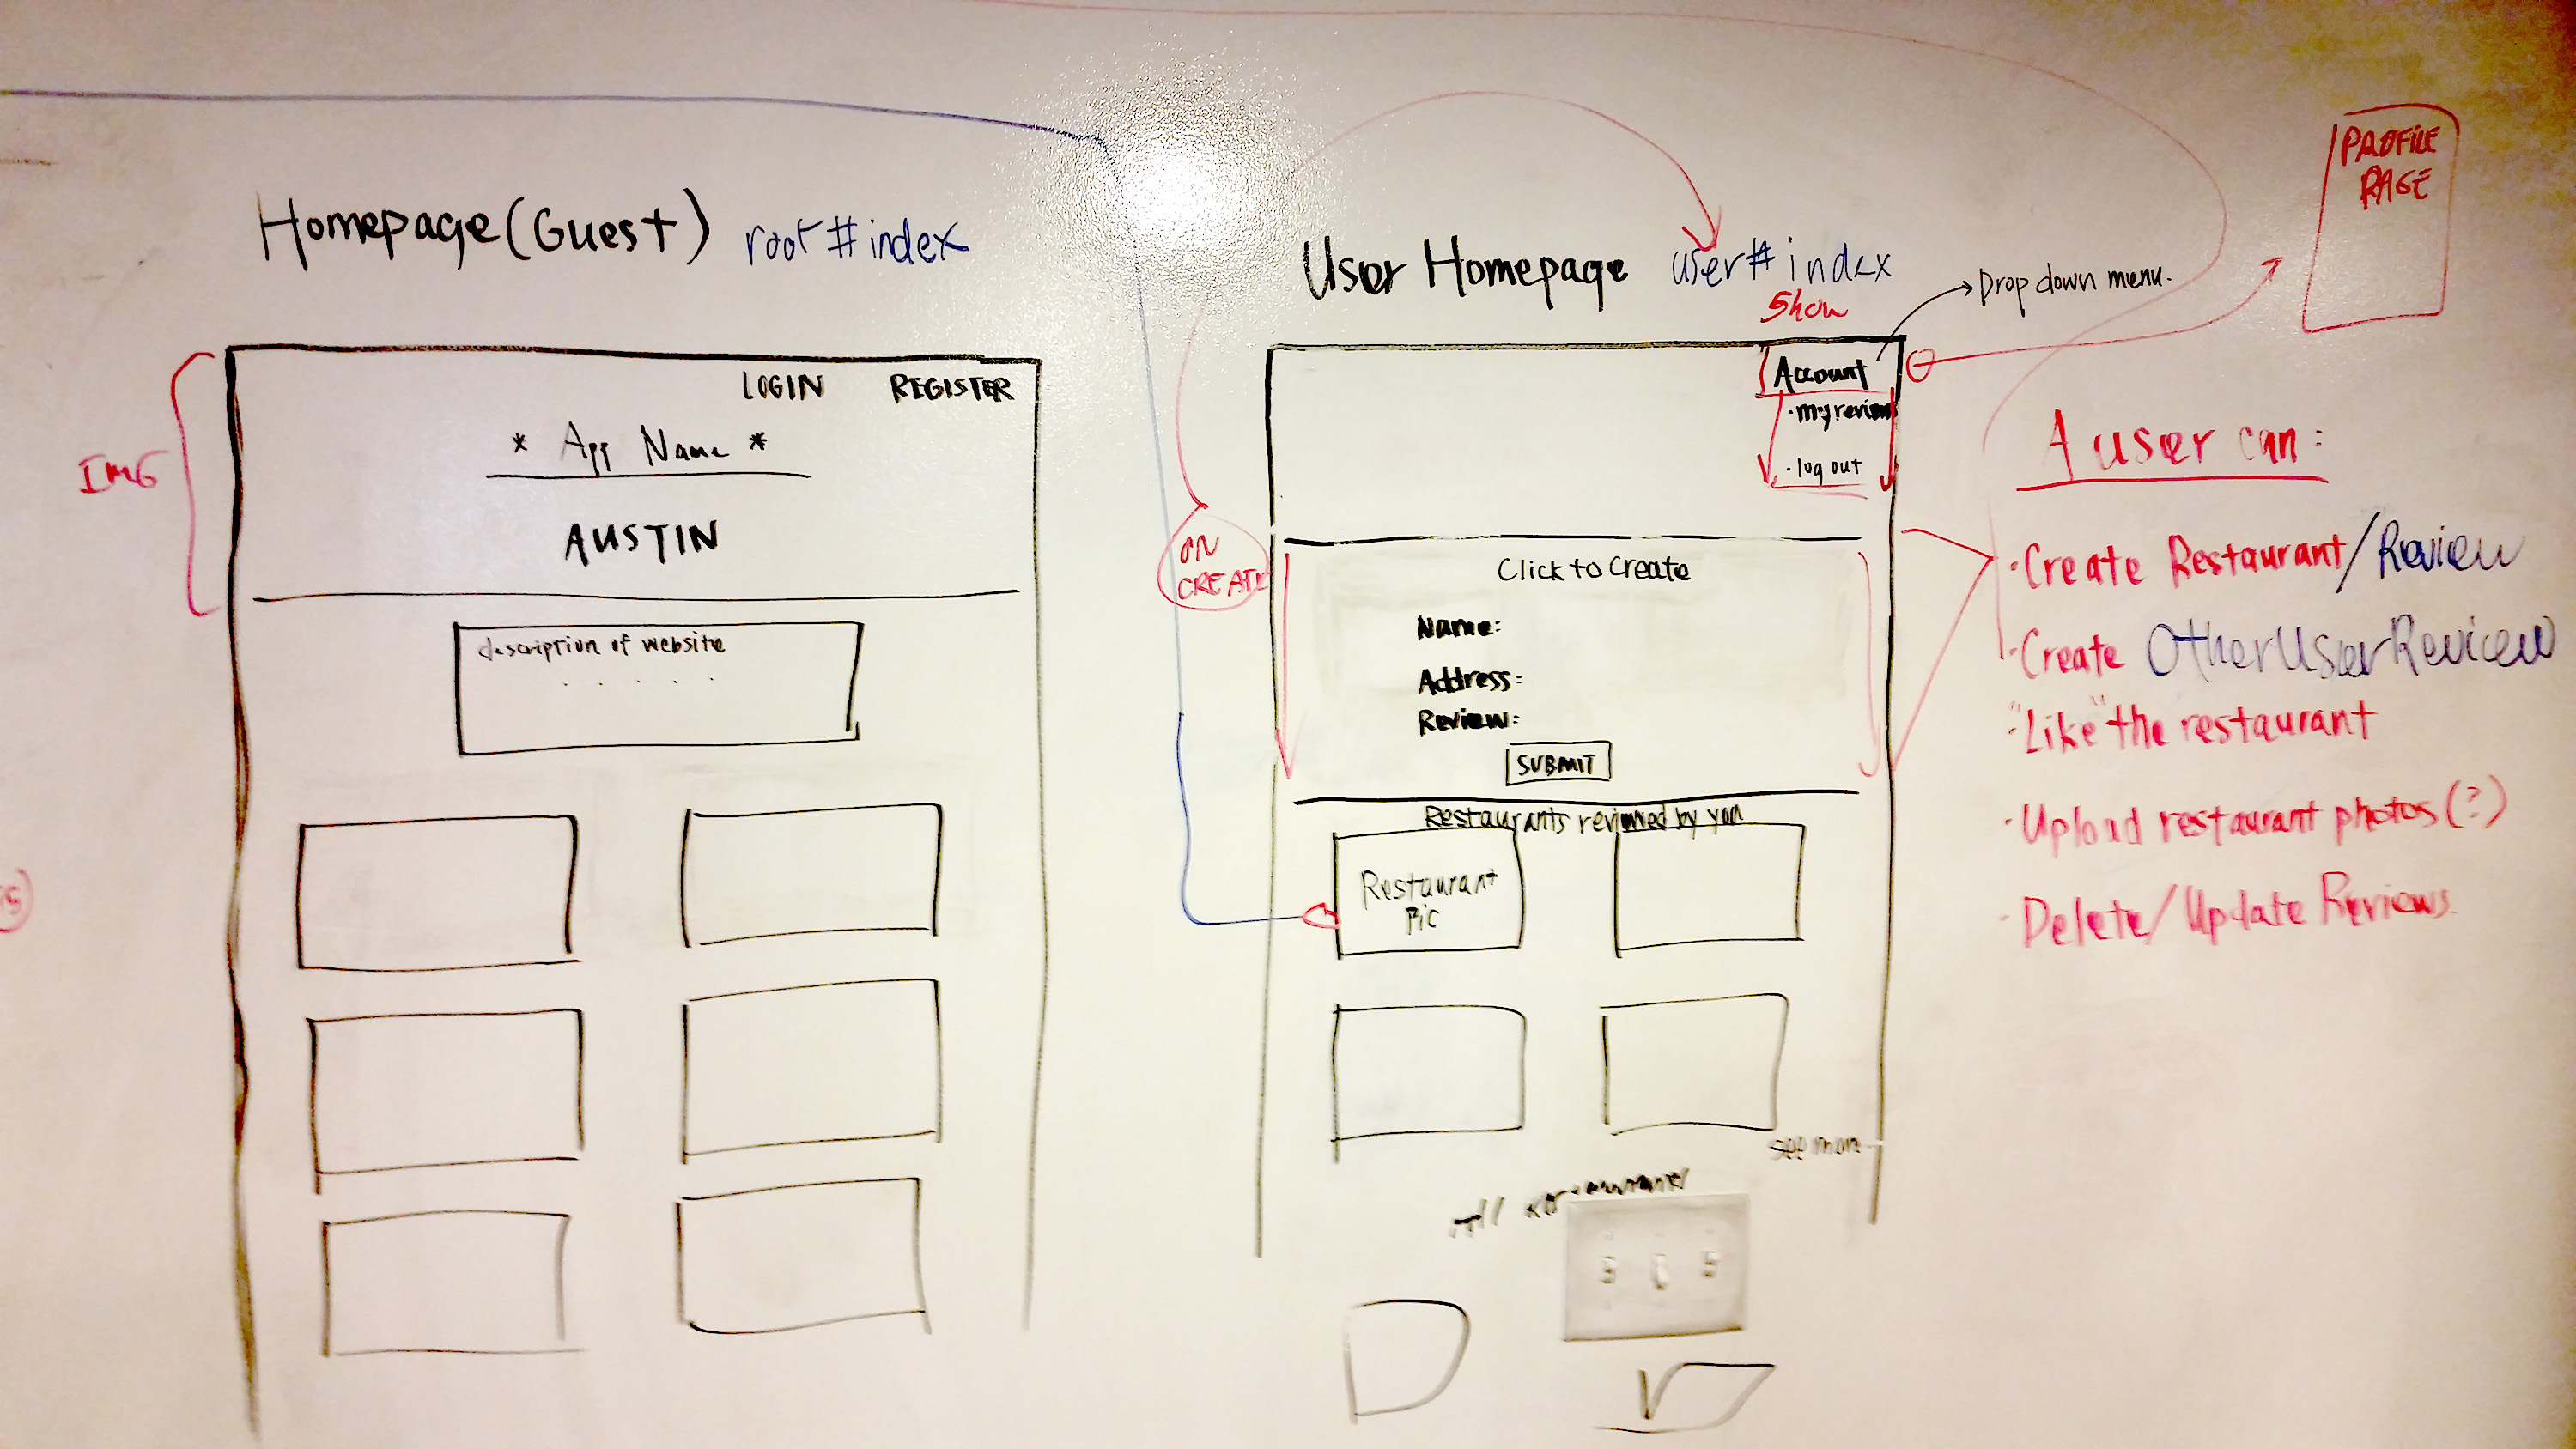 Homepage (Guest) root#index
IMG
LOGIN REGISTER
* App Name *
AUSTIN
description of website
. . . . .
User Homepage user#index
Show
Drop down menu.
PROFILE
PAGE
Account
· my review
· log out
ON
CREATE
Click to Create
Name:
Address:
Review:
SUBMIT
Restaurants reviewed by you
Restaurant
Pic
see more
All restaurants
A user can:
· Create Restaurant/Review
· Create OtherUserReview
· "Like" the restaurant
· Upload restaurant photos (?)
· Delete/Update Reviews